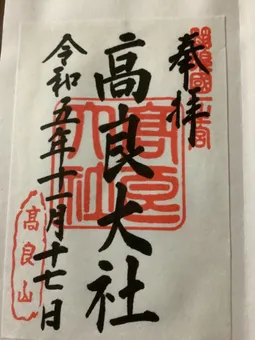 奉拝
高良大社
高良大社
令和五年十一月十七日
髙良山